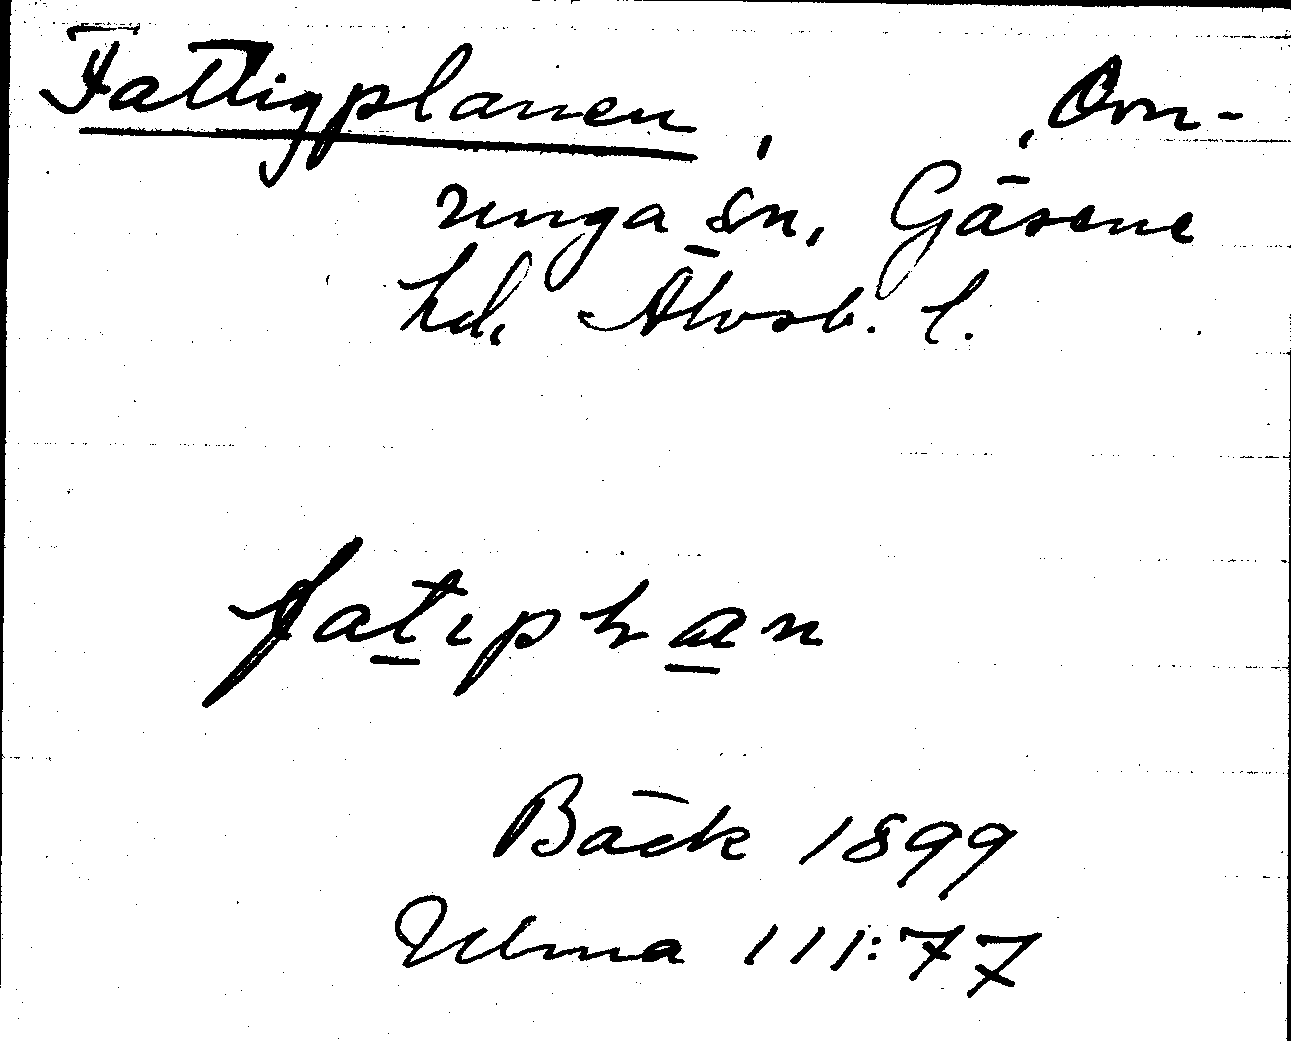 Fattigplanen, , Ornunga sn, Gäsene
hd, Älvsb. l.
fatiphan
Bäck 1899
Ulma 111:77